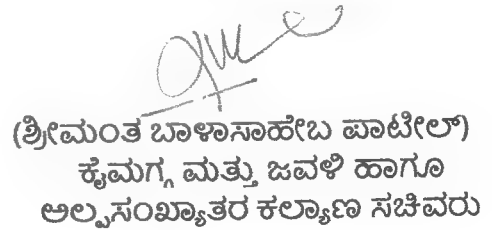 (ಶ್ರೀಮಂತ ಬಾಳಾಸಾಹೇಬ ಪಾಟೀಲ್)
ಕೈಮಗ್ಗ ಮತ್ತು ಜವಳಿ ಹಾಗೂ
ಅಲ್ಪಸಂಖ್ಯಾತರ ಕಲ್ಯಾಣ ಸಚಿವರು